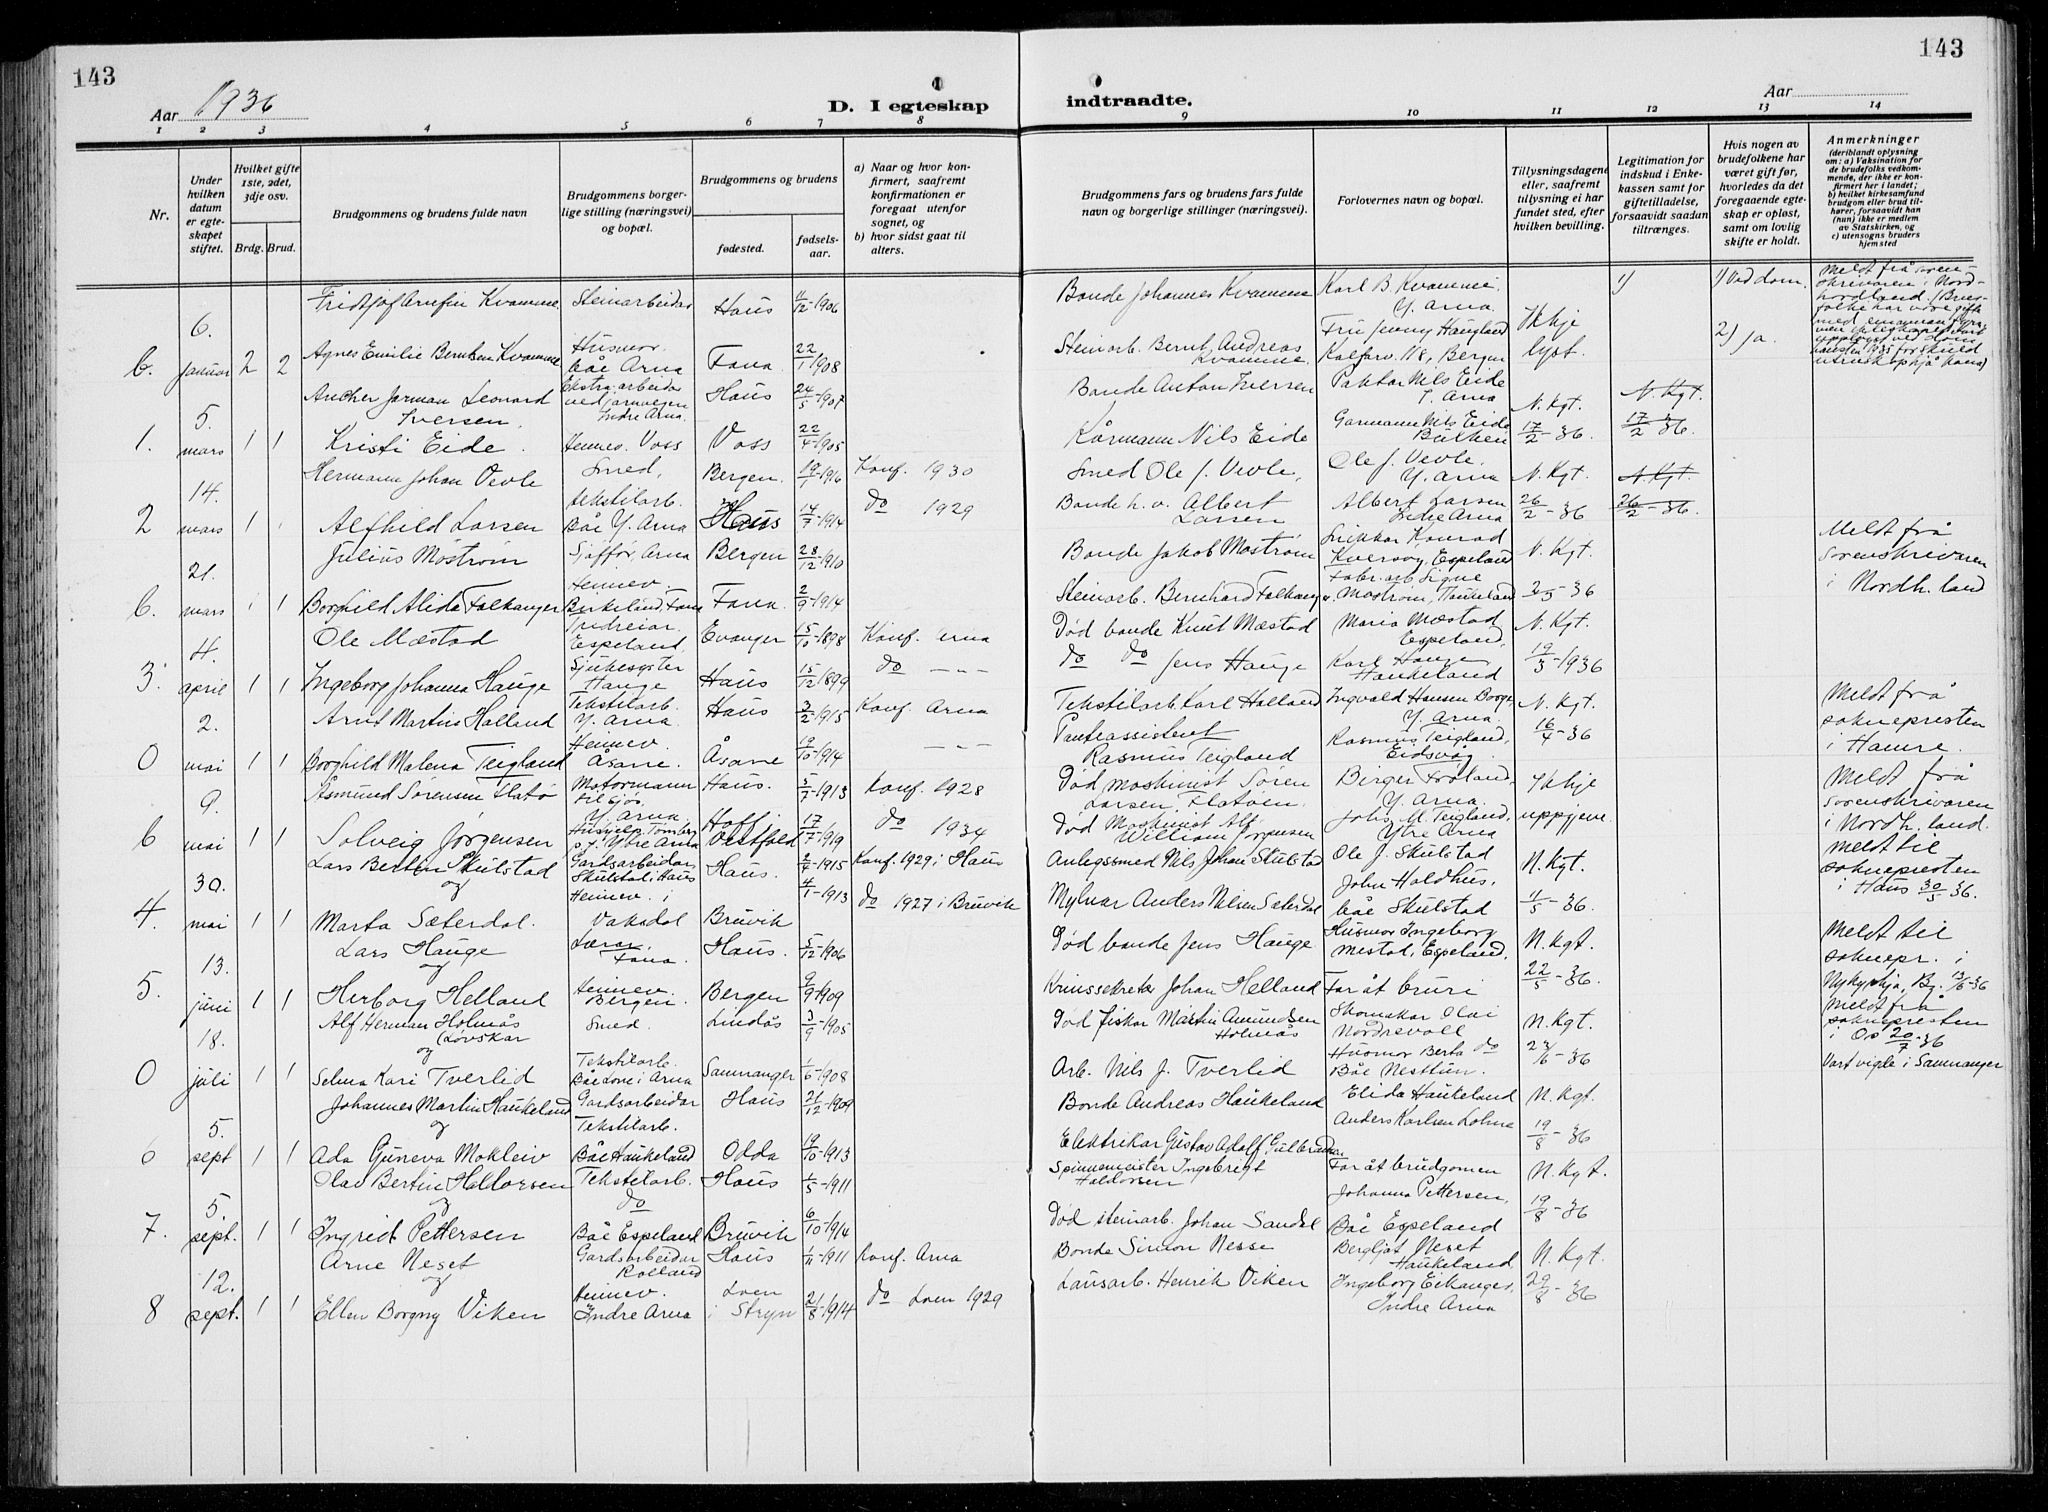 143
143
Aar 1936
D. I egteskap
indtraadte.
Aar
1 2 3 4 5 6 7 8 9 10 11 12 13 14
Nr.
Under hvilken datum er egteskapet stiftet.
Hvilket gifte 1ste, 2det, 3dje osv.
Brdg. Brud.
Brudgommens og brudens fulde navn
Brudgommens borgerlige stilling (næringsvei) og bopæl.
Brudgommens og brudens
fødested.
fødselsaar.
a) Naar og hvor konfirmert, saafremt konfirmationen er foregaat utenfor sognet, og
b) hvor sidst gaat til alters.
Brudgommens fars og brudens fars fulde navn og borgerlige stillinger (næringsvei).
Forlovernes navn og bopæl.
Tillysningsdagene eller, saafremt tillysning ei har fundet sted, efter hvilken bevilling.
Legitimation for indskud i Enkekassen samt for giftetilladelse, forsaavidt saadan tiltrænges.
Hvis nogen av brudefolkene har været gift før, hvorledes da det foregaaende egteskap er opløst, samt om lovlig skifte er holdt.
Anmerkninger
(deriblandt oplysning om: a) Vaksination for de brudefolks vedkommende, der ikke er konfirmert her i landet; b) hvilket kirkesamfund brudgom eller brud tilhører, forsaavidt han (hun) ikke er medlem av Statskirken, og c) utensogns bruders hjemsted
Fridtjof Arnfin Kvamme Steinarbeidar Haus 11/12-1906 Bonde Johannes Kvamme Karl B. Kvamme Y. Arna 1) 1) Ved dom.
b. 6. januar 2 2 Agnes Emilie Kvamme Husmor, båe Arna Fana 22/1 1908 Steinarb. Bernt Andreas Kvamme Fru Jenny Haugland Kalfarv. 118, Bergen Ikkje lyst. 2) Ja.
Ancher Jarman Leonard Iversen Ekstraarbeidar ved jarnvegen Indre Arna Haus 24/5-1907 Bonde Anton Iversen Nils Eide Y. Arna N. Kgt. N. Kgt.
1. 5. mars 1 1 Kristi Eide Heimev. Voss Voss 22/4-1905 Kårmann Nils Eide Garmann Nils Eide Bulken 17/2-36. 17/2-36.
Hermann Johan Vevle Smed, Bergen 19/1-1916 Konf. 1930 Smed Ole J. Vevle, Ole J. Vevle. Y. Arna N. Kgt. N. Kgt.
2 14. mars 1 Alfhild Larsen tekstilarb. Båe Y. Arna Haus 14/7-1914 do 1929 Bonde h. v. Albert Larsen Albert Larsen Indre Arna 26/2-36 26/2-36.
Julius Moström Sjåffør, Arna Bergen 28/12-1910 Bonde Jakob Moström Konrad Kversøy, Espeland N. Kgt. Meldt frå sorenskrivaren i Nordh. land
b. 21. mars 1 1 Borghild Alida Falkanger Heimev. Birkeland, Fana Fana. 2/9-1914 Steinarb. Bernhard Falkanger Fabr. arb. Signe Moström, Haukeland 36
Ole Mæstad Espeland, Evanger 5/10-1898 Konf. Arna Død bonde Knut Mæstad Maria Mæstad Espeland, N. Kgt.
3. 4. april 1 1 Ingeborg Johanna Hauge Sjukesyster Hauge Haus 15/12 1899 do — do do Jens Hauge Karl Hauge Haukeland 19/3-1936
Arnt Martin Holland Tekstilarb. Y. Arna. Haus 3/2-1915 Konf. Arna Tekstilarb. Karl Holland Ingvald Hansen Borge, Y. Arna. N. Kgt. Meldt frå soknepresten i Hamre.
0 2. mai 1 1 Borghild Malena Teigland Heimev. Åsane. Åsane 19/10-1914 — Rasmus Teigland Rasmus Teigland, Eidsvåg 16/4-36
Åsmund Sørensen Flatø Motormann til sjøs Y. Arna Haus. 5/7-1913 Konf. 1928 Død maskinist Søren Larsen Flatøen. Birger Froland, Y. Arna. Ikkje Meldt frå sorenskrivaren i Nordh. land.
6 9. mai 1 1 Solveig Jørgensen Ytre Arna Vestfold 17/7-1919 do 1934 Død Maskinist Alf William Jørgensen Johs. M. Teigland, Ytre Arna uppgjeve.
Lars Bertin Skulstad og Gardsarbeidar Skulstad i Haus Haus. 2/7-1915 Konf. 1929 i Haus Anlegssmed Nils Johan Skulstad Ole J. Skulstad N. Kgt. Meldt til soknepresten i Haus 30/5 36.
4. 30. mai 1 1 Marta Sæterdal. Heimev. i Vaksdal Bruvik 4/1-1913 do 1927 i Bruvik Mylnar Anders Nilsen Sæterdal John Holdhus, båe Skulstad 11/5-36.
Lars Hauge og Lærar, Fana. Haus. 5/12-1906 Død bonde Jens Hauge Husmor Ingeborg Mestad, Espeland. N. Kgt. Meldt til soknepr. i Nykyrkja, Bg. 13/6-36
5. 13. juni 1 1 Herborg Helland Heimev. Bergen. Bergen 9/9-1909 Krinssekretær Johan Helland Far åt bruri 22/5-36.
Alf Herman Holmås (Løvskar og Smed. Lindås 3/9-1905 Død fiskar Martin Amundsen Holmås Skomakar Olai Nordrevoll N. Kgt. Meldt frå soknepresten i Os 20/7-36
0 18. juli 1 1 Selma Kari Tverlid Tekstilarb. Båe Lone i Arna Samnanger 1/6-1908 Arb. Nils J. Tverlid Husmor Berta do Båe Nesttun. 23/6-36 Vart vigde i Samnanger
Johannes Martin Haukeland og Gardsarbeidar Haus 21/12-1909 Bonde Andreas Haukeland Elida Haukeland N. Kgt.
6 5. sept 1 1 Ada Guneva Mokleiv Tekstilarb. Båe Haukeland Odda 19/10-1913 Elektrikar Gustav Adolf Gulbrandsen Anders Karlsen 19/8-36
Olav Bertin Haldorsen og Tekstilarb. Haus 1/5-1911 Spinnemeister Ingebrigt Haldorsen Far åt brudgomen N. Kgt.
7. 5. sept. 1 1 Ingrid Pettersen do Båe Espeland Bruvik 6/10-1914 Død steinarb. Johan Sandal Johanna Pettersen, Båe Espeland 19/8-36
Arne Neset og Gardsarbeidar Rolland Haus 1/11-1911 Konf. Arna Bonde Simon Nesse Bergljot Neset Haukeland, N. Kgt.
8 12. sept. 1 1 Ellen Borgny Viken Heimev. Indre Arna Loen i Stryn 21/8-1914 do Loen 1929 Lausarb. Henrik Viken Ingeborg Eikanger, Indre Arna 29/8-36